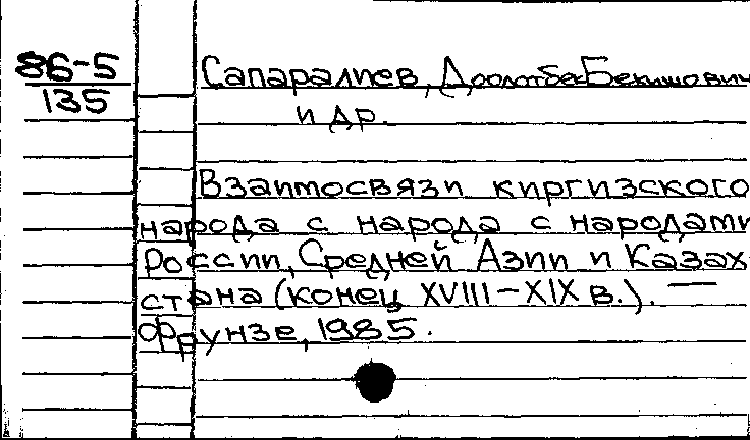 86-5
135
Сапаралиев, Доолотбек Бекишович
и др.
Взаимосвязи киргизского
народа с народа с народами
России, Средней Азии и Казах-
стана (конец XVIII-XIX в.). —
Фрунзе, 1985.